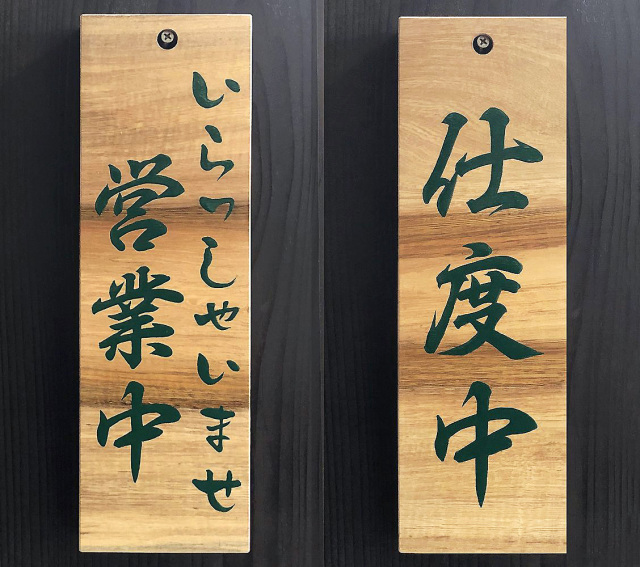 いらっしゃいませ
営業中
仕度中